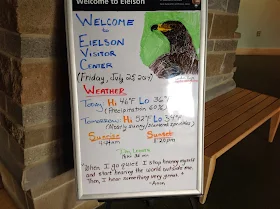 Welcome to Eielson
Welcome
to
Eielson
Visitor
Center
(Friday, July 25
Weather
Today: Hi 46°F Lo 36°
(Precipitation 60%)
Tomorrow: Hi 52°F Lo 39°
(Mostly sunny/
Sunrise
Sunset
"When I go quiet I stop hearing myself
and start hearing the world outside me.
Then I hear something very great."